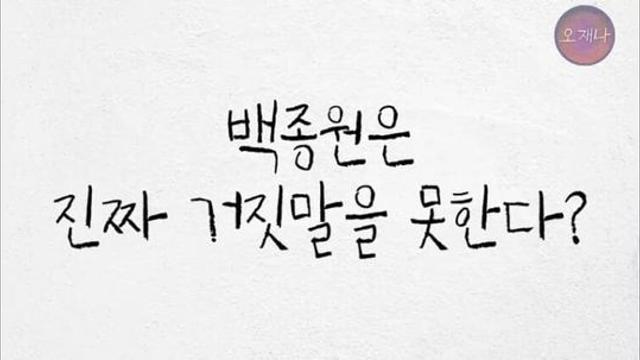 오재나
백종원은
진짜 거짓말을 못한다?